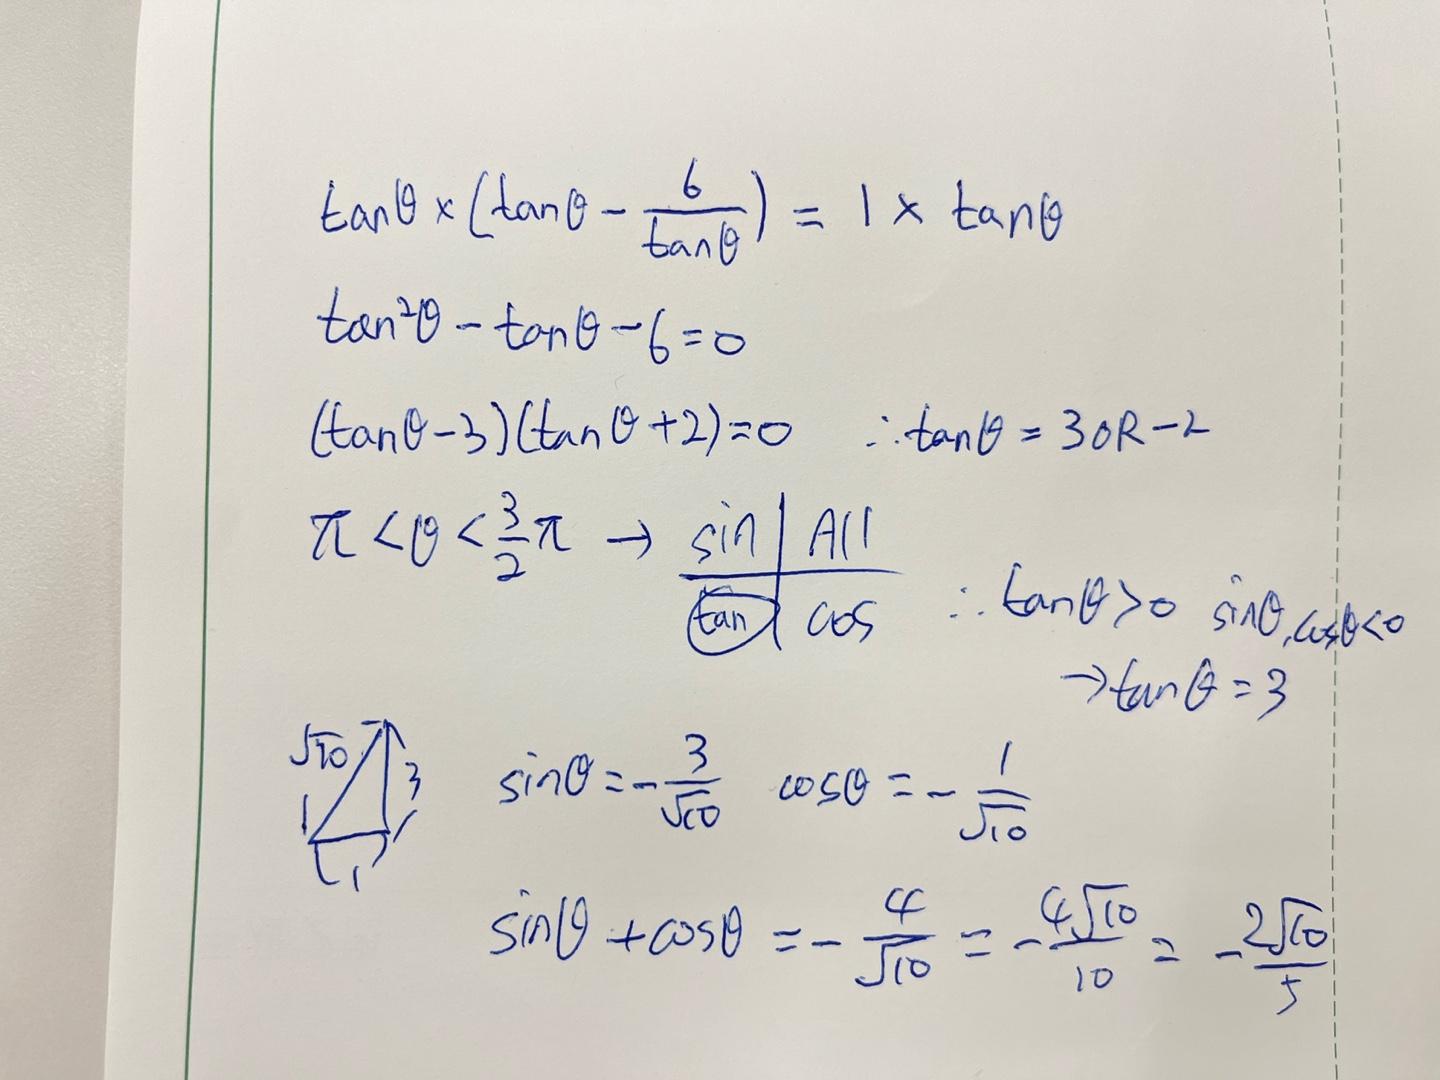 tanθ × (tanθ - 6/tanθ) = 1 × tanθ
tan²θ - tanθ - 6 = 0
(tanθ - 3)(tanθ + 2) = 0 ∴ tanθ = 3 OR -2
π < θ < 3/2 π → sin All
tan cos ∴ tanθ > 0 sinθ, cosθ < 0
→ tanθ = 3
√10 3 1
sinθ = - 3/√10 cosθ = - 1/√10
sinθ + cosθ = - 4/√10 = - 4√10/10 = - 2√10/5